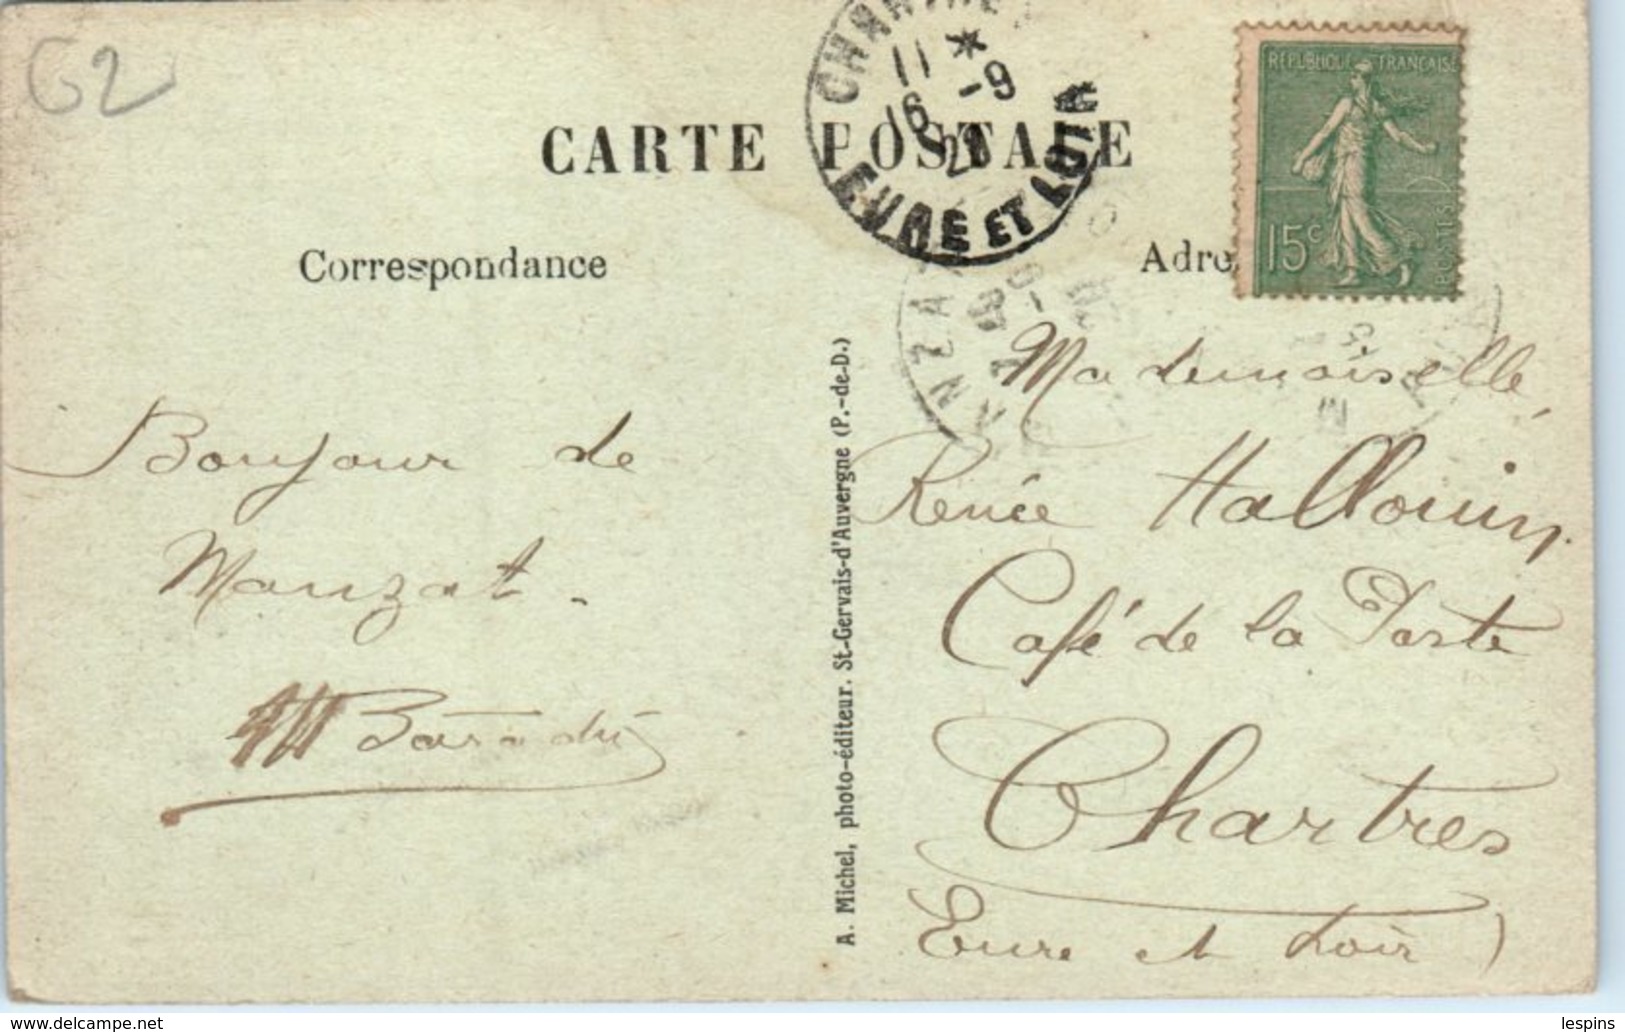 G2
CARTE POSTALE
CHARTRES
11 *
16 -9
EURE ET LOIR
RÉPUBLIQUE FRANÇAISE
15c
POSTES
Correspondance
Adre
Bonjour de
Manzat.
A. Michel, photo-éditeur. St-Gervais-d'Auvergne (P.-de-D.)
Mademoiselle,
Renée Hallouin,
Café de la Porte
Chartres
Eure et Loir)
lespins
www.delcampe.net